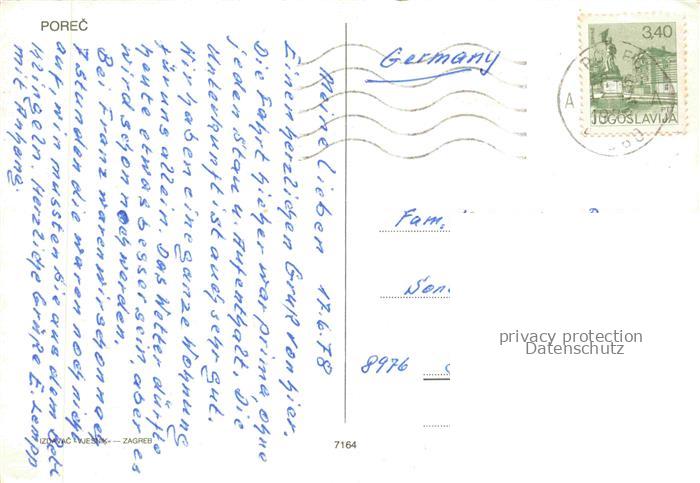 POREČ
Meine Lieben 17.6.78
Einen herzlichen Gruß von hier.
Die Fahrt hieher war prima ohne
jeden Stau u. Aufenthalt. Die
Unterkunft ist auch sehr gut.
Wir haben eine ganze Wohnung
für uns allein. Das Wetter dürfte
heute etwas besser sein, aber es
wird schon noch werden.
Bei Franz waren wir schon nach
7 Stunden die waren noch nicht
auf, wir mussten Sie aus dem Bett
klingeln. Herzliche Grüße E. Lempp
mit Anhang.
Germany
3,40
JUGOSLAVIJA
Fam.
8976
privacy protection
Datenschutz
IZDAVAČ »VJESNIK« — ZAGREB
7164